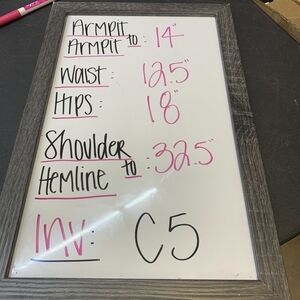 Armpit
to: 14"
Armpit
Waist: 12.5"
Hips: 18"
Shoulder
to: 32.5"
Hemline
Inv: C5